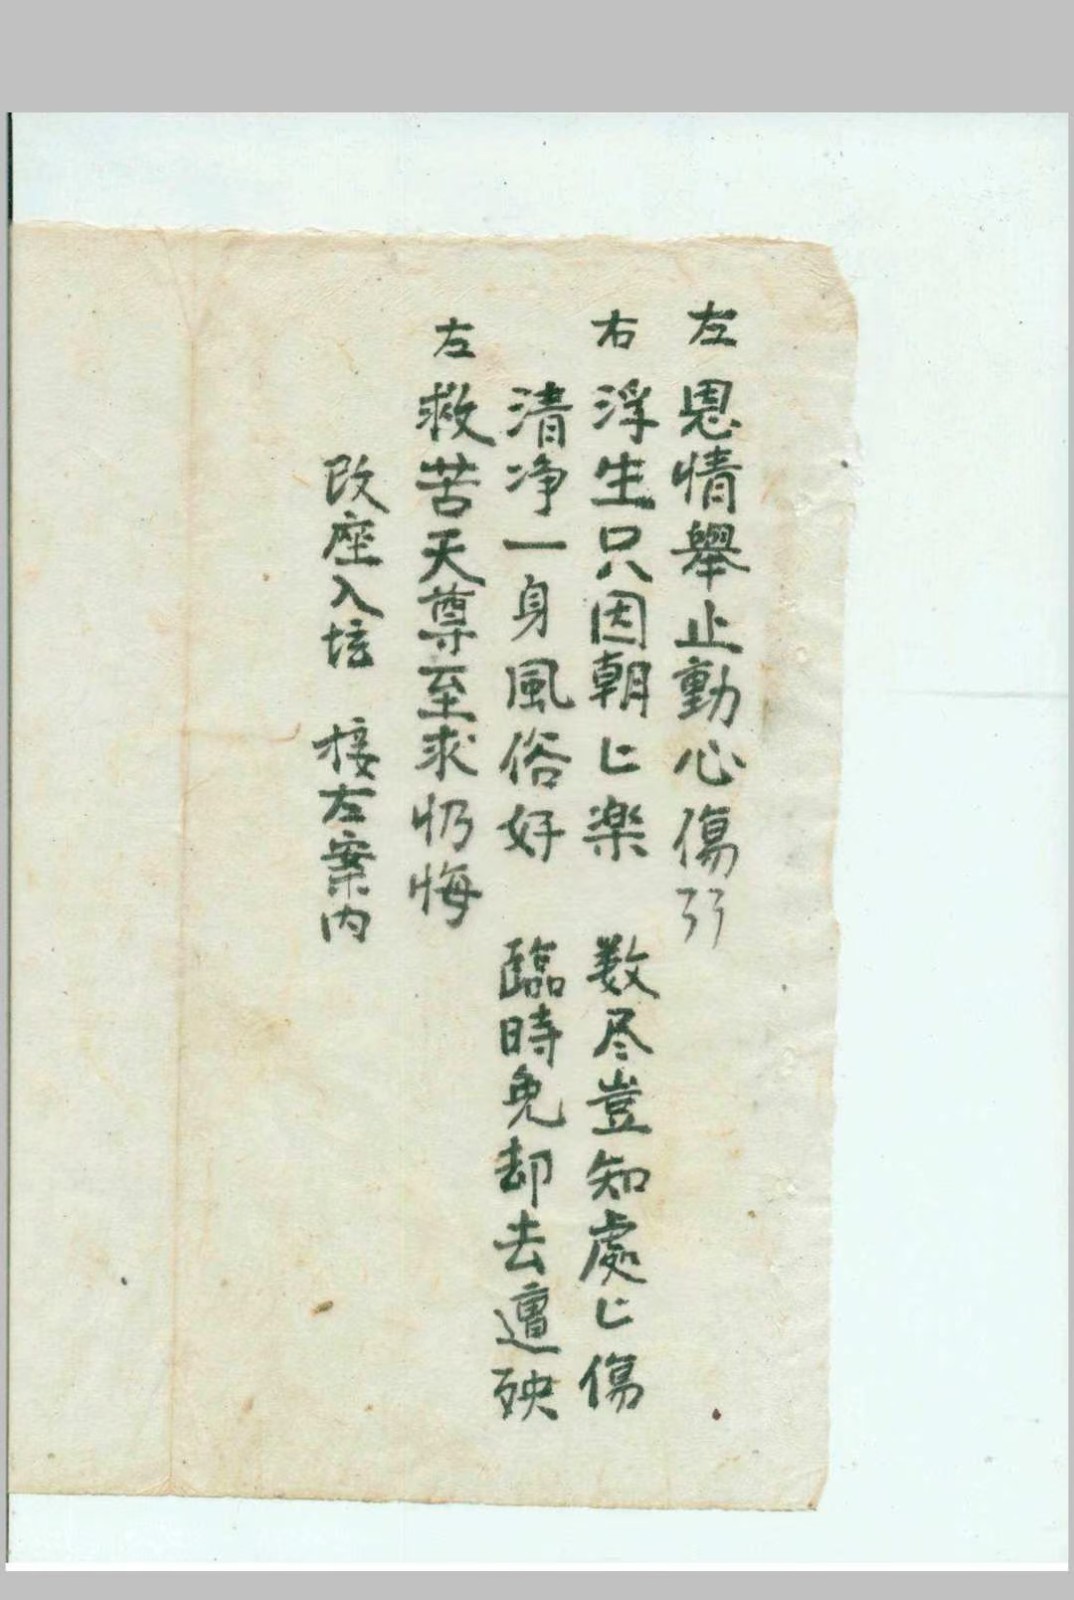 左 恩情舉止動心傷
右 浮生只因朝〻楽 数尽豈知處〻傷
清净一身風俗好 臨時免却去遭殃
左 救苦天尊至求忉悔
改座入坛 接左案内